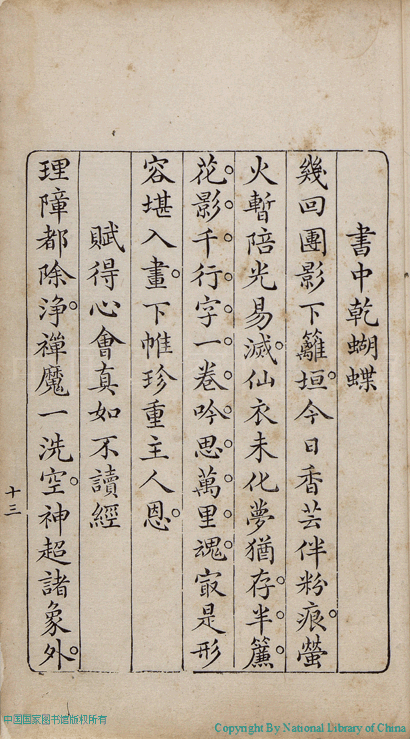 書中乾蝴蝶
幾回團影下籬垣今日香芸伴粉痕。螢
火暫陪光易滅。仙衣未化夢猶存。半簾。
花。影。千。行。字。一。卷。吟。思。萬。里。魂。㝡是形
容堪入畫。下帷珍重主人恩。
賦得心會真如不讀經
理障都除淨。禪魔一洗空。神超諸象外。
十三
中国国家图书馆版权所有
Copyright By National Library of China